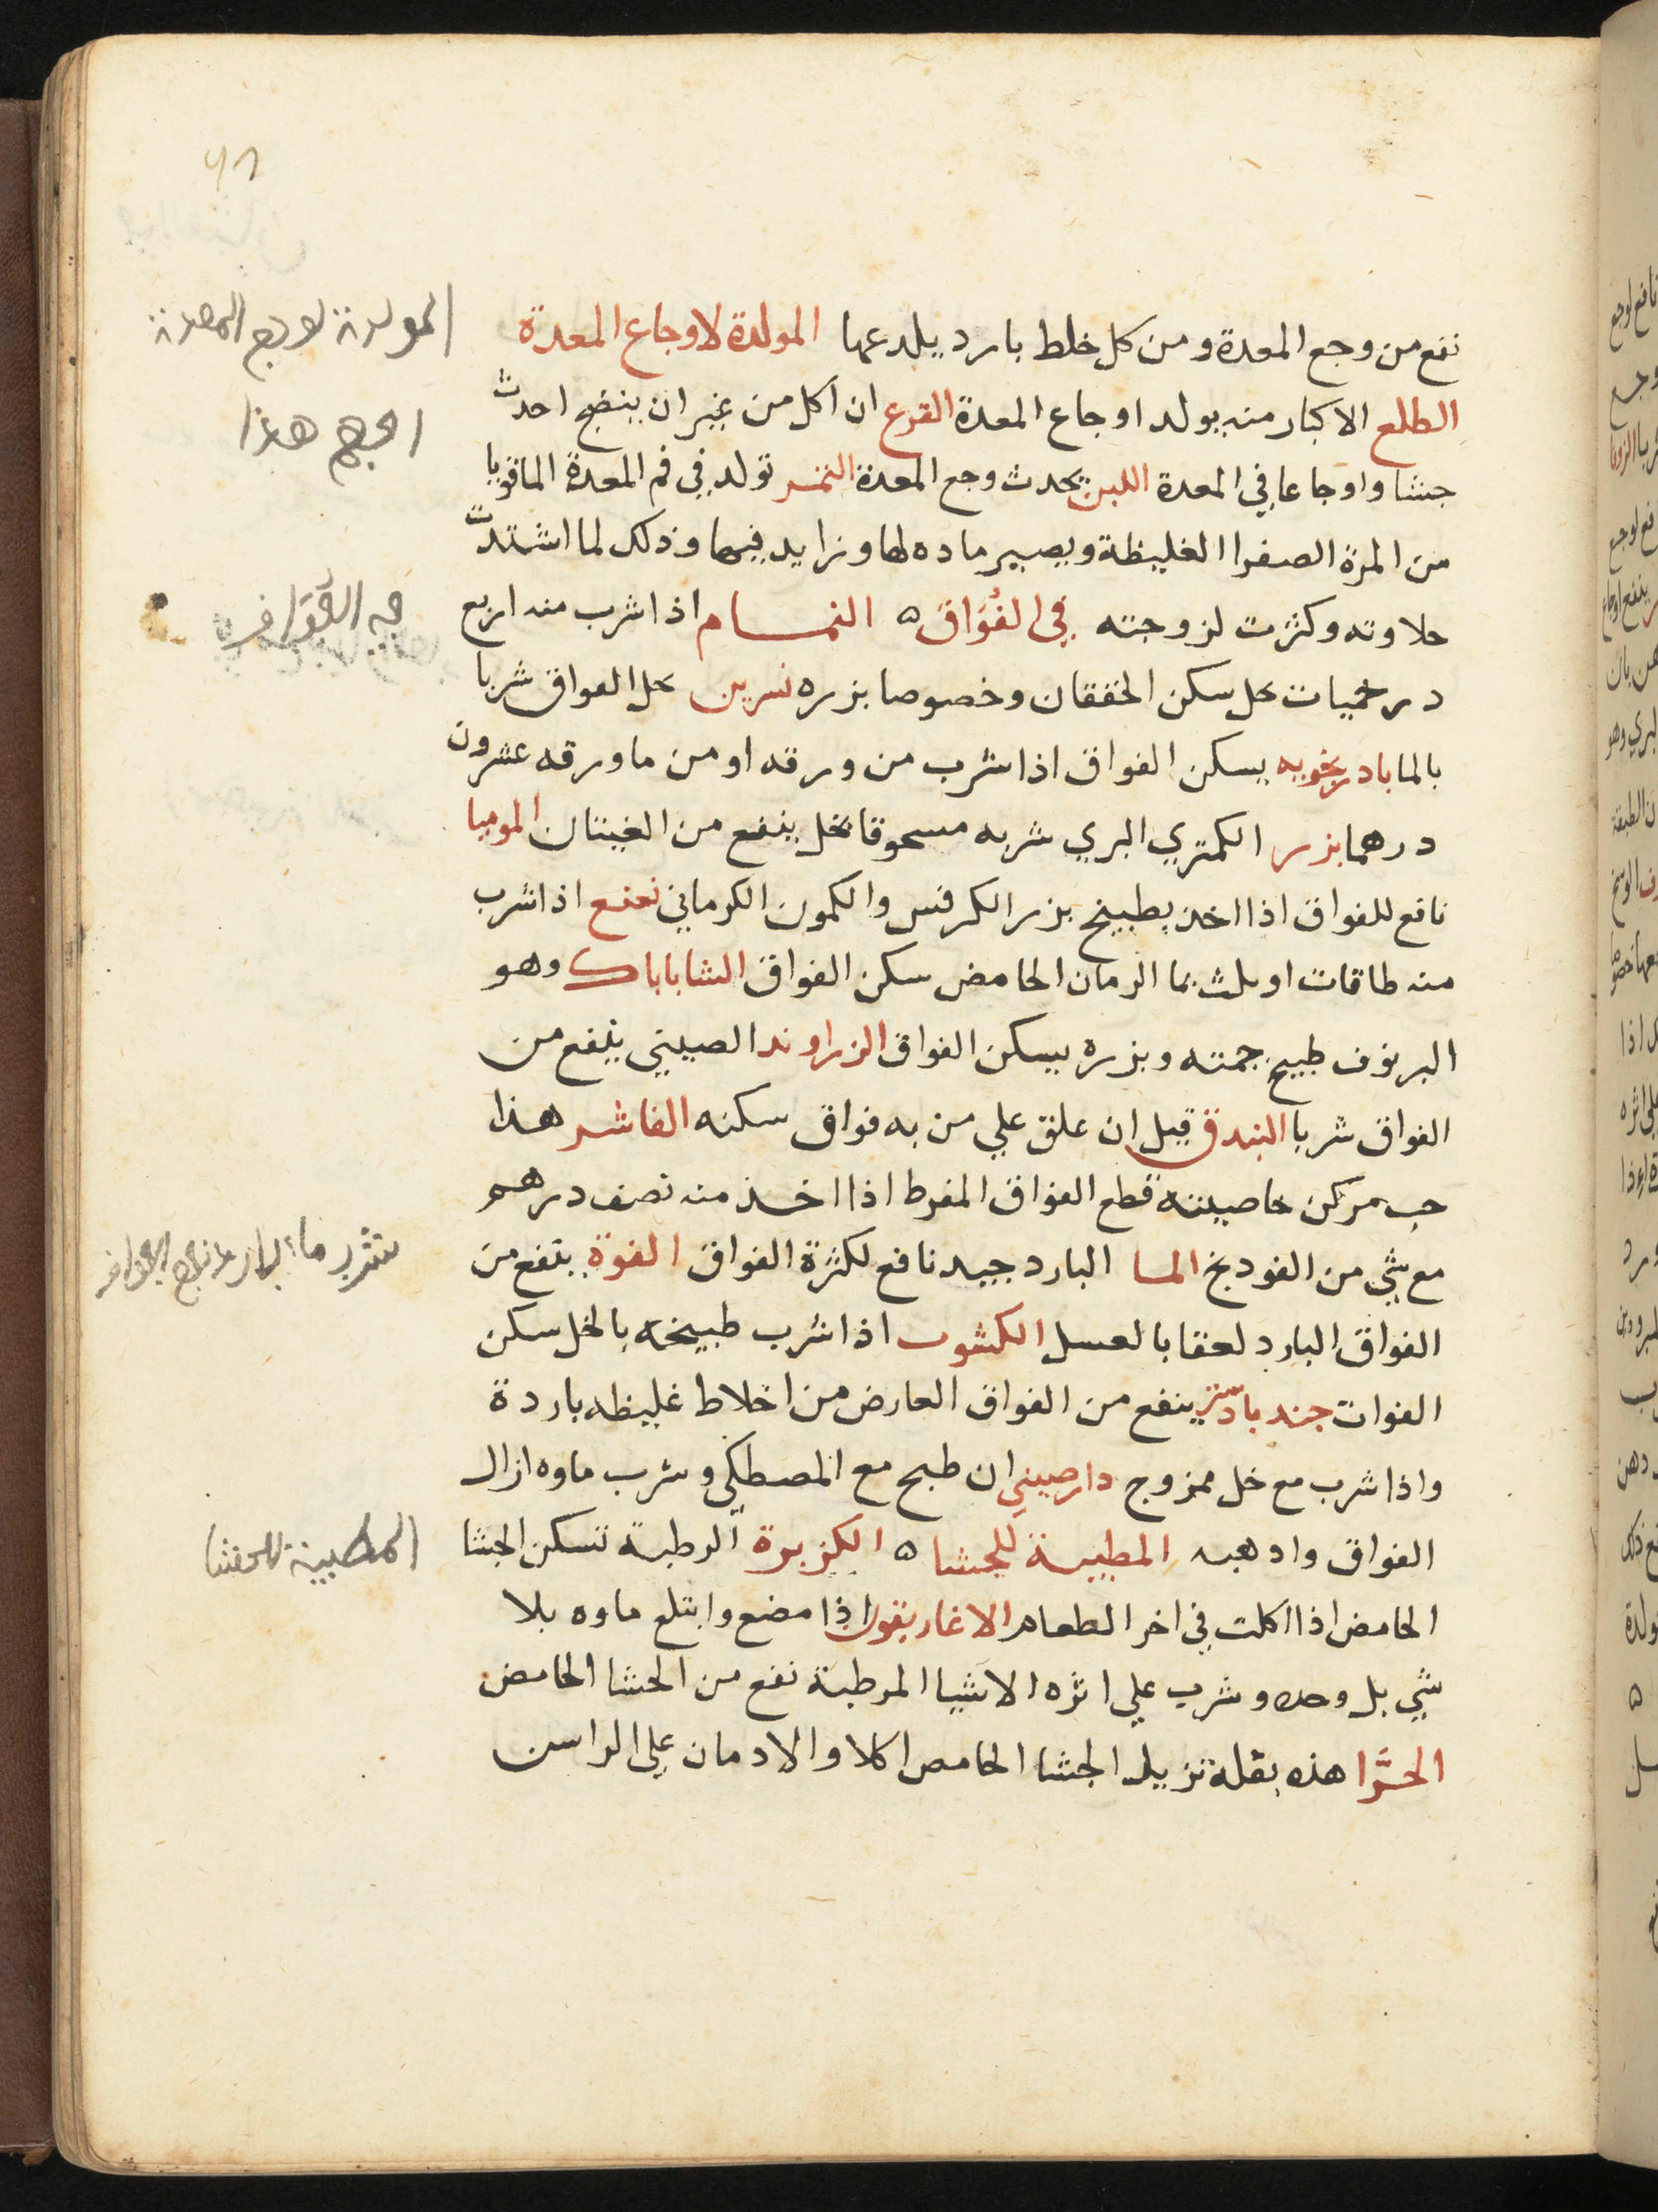 نفع من وجع المعدة ومن كل خلط بارد يلدعها المولدة لاوجاع المعدة
الطلع الاكبار منه يولد اوجاع المعدة القرع ان اكل من غير ان ينضج احدث
جشا واوجاعا في المعدة اللبن يحدث وجع المعدة التمر تولد في فم المعدة
من المرة الصفرا الغليظة ويصير ماده لها وتزايد فيها وذلك لما اشتدت
حلاوته وكثرت لزوجته في الفُوَاق ه النمام اذا شرب منه اربع
درخميات بخل سكن الخفقان وخصوصا بزره نسرين بخل الفواق شربا
بالما بادرنجوبه يسكن الفواق اذا شرب من ورقه او من ما ورقه عشرون
درهما بزر الكمثري البري شربه مسحوقا بخل ينفع من الغيثان الموميا
نافع للفواق اذا اخذ بطبيخ بزر الكرفس والكمون الكرماني نعنع اذا شرب
منه طاقات او ثلث بما الرمان الحامض سكن الفواق الشاباباك وهو
البرنوف طبيخ جمته وبزره يسكن الفواق الزراوند الصيني ينفع من
الفواق شربا البندق قيل ان علق علي من به فواق سكنه الفاشر هذا
حب مركن خاصيته قطع الفواق المفرط اذا اخذ منه نصف درهم
مع شي من الفودنج الما البارد جيد نافع لكثرة الفواق الفوة ينفع من
الفواق البارد لعقا بالعسل الكشوت اذا شرب طبيخه بالخل سكن
الفواق جندبادستر ينفع من الفواق العارض من اخلاط غليظه باردة
واذا شرب مع خل ممزوج دارصيني ان طبخ مع المصطكي وشرب ماوه ازال
الفواق وادهبه المطيبة للجشا ه الكزبرة الرطبة تسكن الجشا
الحامض اذا اكلت في اخر الطعام الاغاريقون اذا مضع وابتلع ماوه بلا
شي بل وحده وشرب علي اثره الاشيا المرطبة نفع من الجشا الحامض
الحَزَّا هذه بقلة تزيل الجشا الحامض اكلا والادمان علي الراسن
المولدة لوجع المعدة
هذا
في الفواق
شرب ماء البارد
المطيبة للجشا